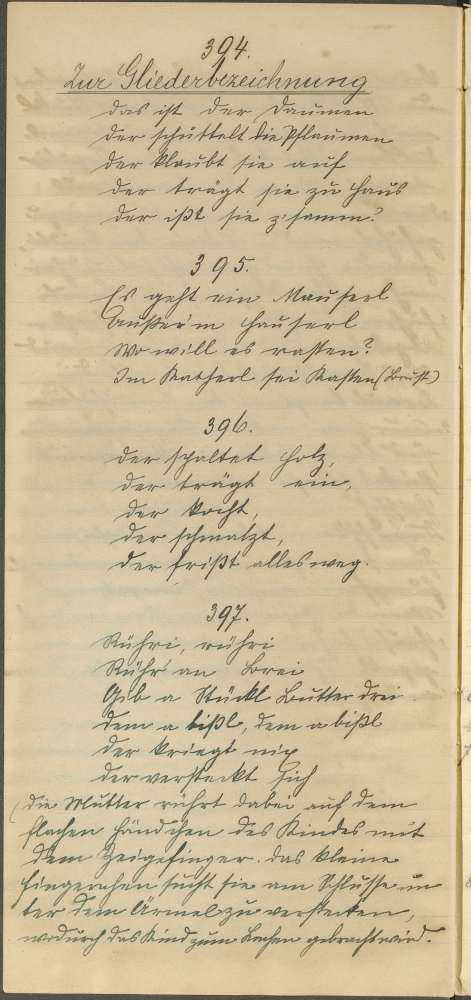 394.
Zur Gliederbezeichnung
Das ist der Daumen
Der schüttelt die Pflaumen
Der klaubt sie auf
Der trägt sie zu Haus
Der ißt sie z'samm.
395.
Es geht ein Mauserl
Außer'm Hauserl
Wo will es rasten?
Im Katherl sei Kasten (Brust)
396.
Der spaltet Holz,
Der trägt ein,
Der kocht,
Der schmalzt,
Der frißt alles weg.
397.
Rühri, rühri
Rühr' an Brei
Gib a Stückl Butter drei
Dem a bißl, dem a bißl
Der kriegt nix
Der versteckt sich
(Die Mutter rührt dabei auf dem
flachen Händchen des Kindes mit
dem Zeigefinger. Das kleine
Fingerchen sucht sie am Schlusse un
ter dem Ärmel zu verstecken,
wodurch das Kind zum Lachen gebracht wird.